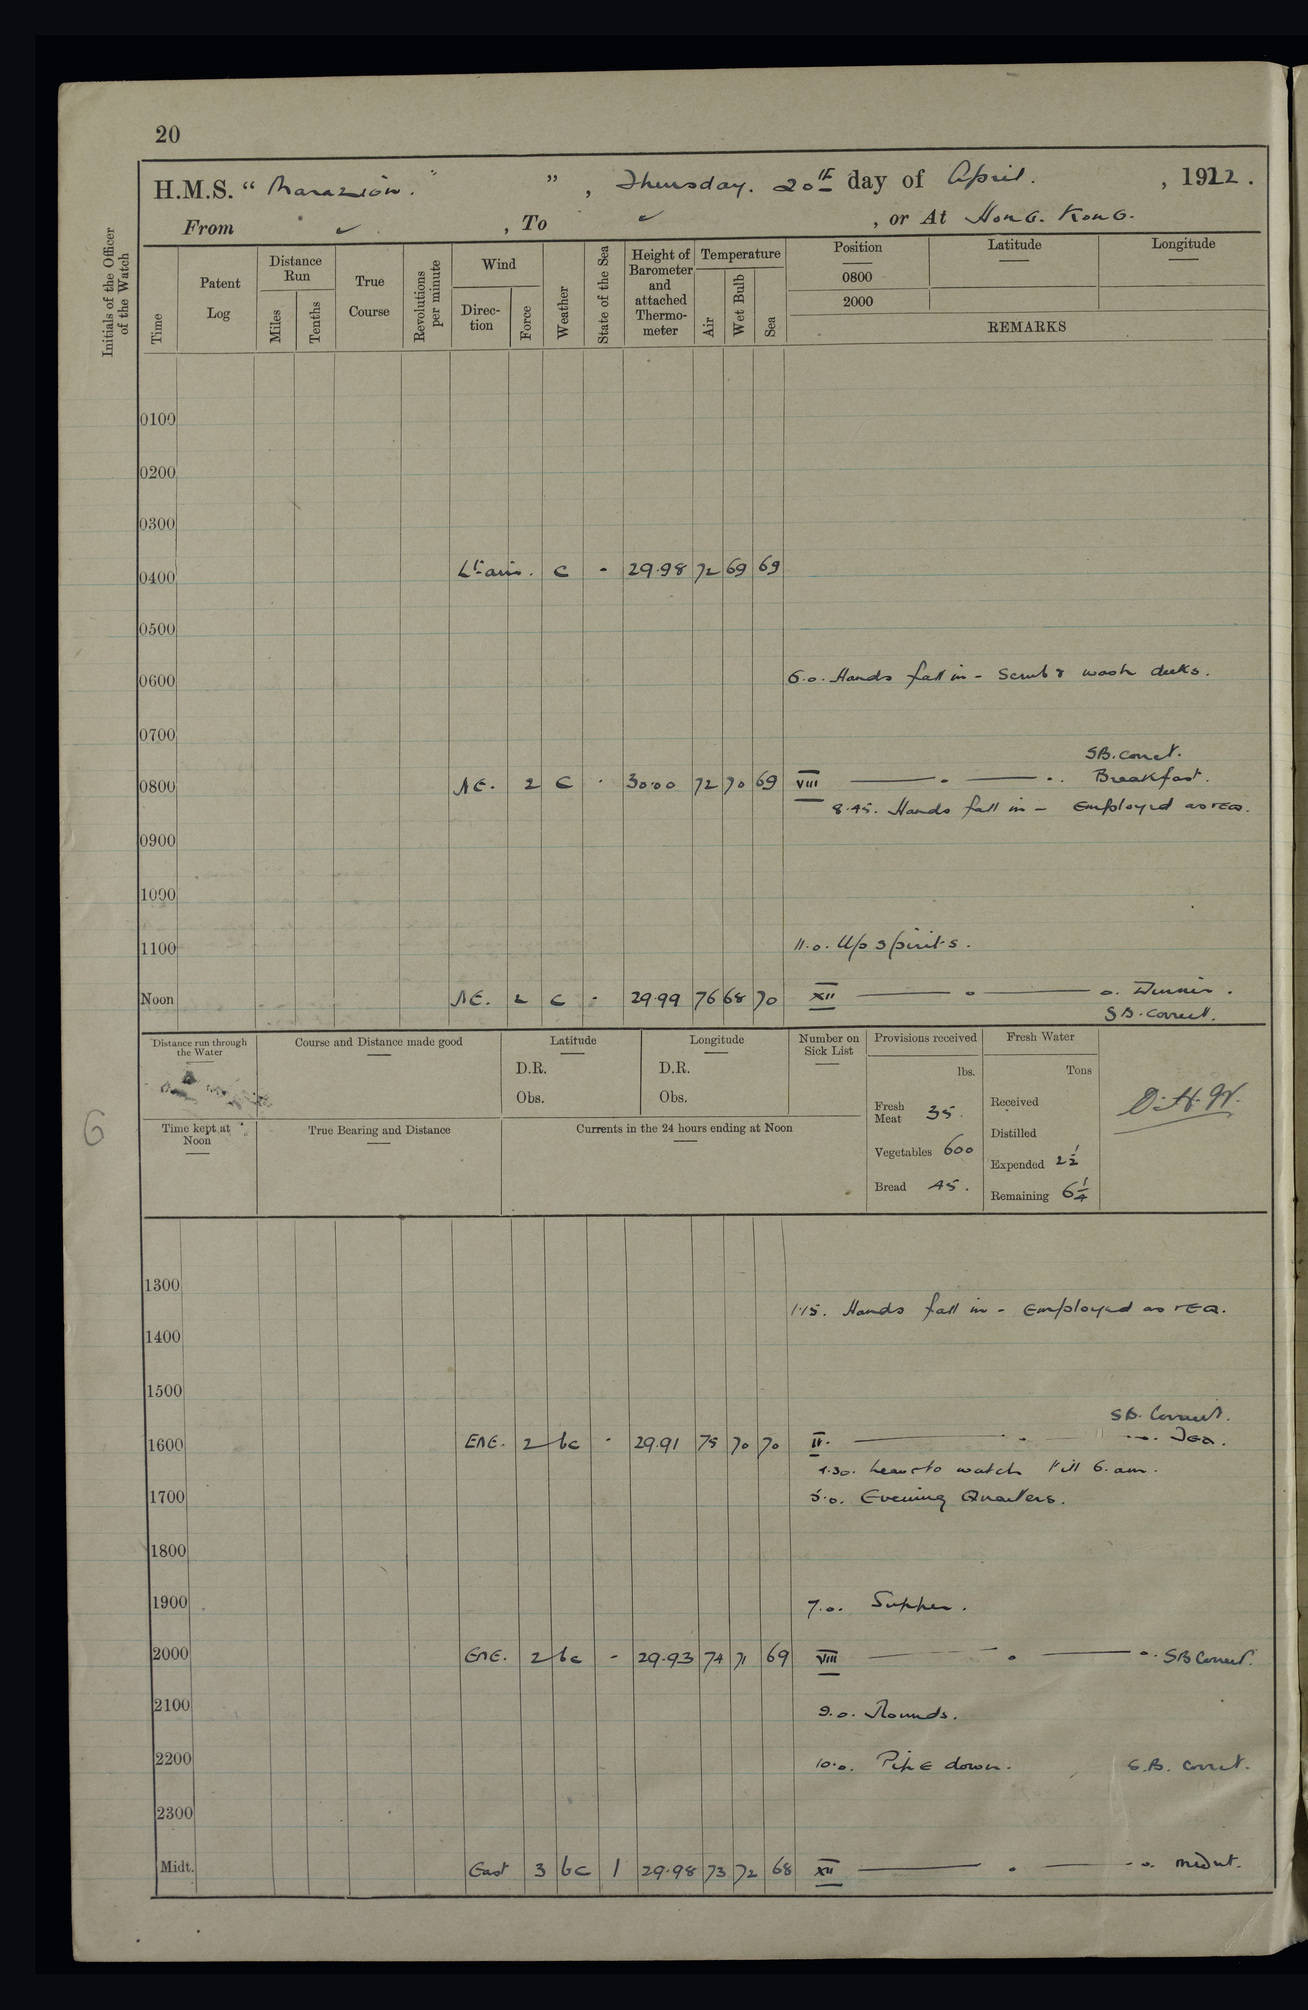 20
H.M.S. “ Marazion. ” , Thursday. 20th day of April. , 1922.
From ✓ , To ✓ , or At Hong. Kong.
Initials of the Officer of the Watch
Time
Patent Log
Distance Run
Miles
Tenths
True Course
Revolutions per minute
Wind
Direction
Force
Weather
State of the Sea
Height of Barometer and attached Thermometer
Temperature
Air
Wet Bulb
Sea
Position
Latitude
Longitude
0800
2000
REMARKS
0100
0200
0300
0400 Lt airs. c - 29.98 72 69 69
0500
0600 6.0. Hands fall in - Scrub & wash decks.
0700
S.B. correct.
0800 NE. 2 c - 30.00 72 70 69 VIII Breakfast.
8.45. Hands fall in - Employed as req.
0900
1000
1100 11.0. Up spirits.
Noon NE. 2 c - 29.99 76 68 70 XII Dinner.
S.B. correct.
Distance run through the Water
Course and Distance made good
Latitude
D.R.
Obs.
Longitude
D.R.
Obs.
Number on Sick List
Provisions received
lbs.
Fresh Meat 35.
Vegetables 600
Bread 45.
Fresh Water
Tons
Received
Distilled
Expended 2½
Remaining 6¼
D.H.W.
6
Time kept at Noon
True Bearing and Distance
Currents in the 24 hours ending at Noon
1300
1.15. Hands fall in - Employed as req.
1400
1500
S.B. Correct.
1600 ENE. 2 bc - 29.91 75 70 70 IV. Tea.
4.30. Leave to watch till 6. am.
1700 5.0. Evening Quarters.
1800
1900 7.0. Supper.
2000 ENE. 2 bc - 29.93 74 71 69 VIII SB Correct.
2100 9.0. Rounds.
2200 10.0. Pipe down. S.B. correct.
2300
Midt. East 3 bc 1 29.98 73 72 68 XII Midnt.